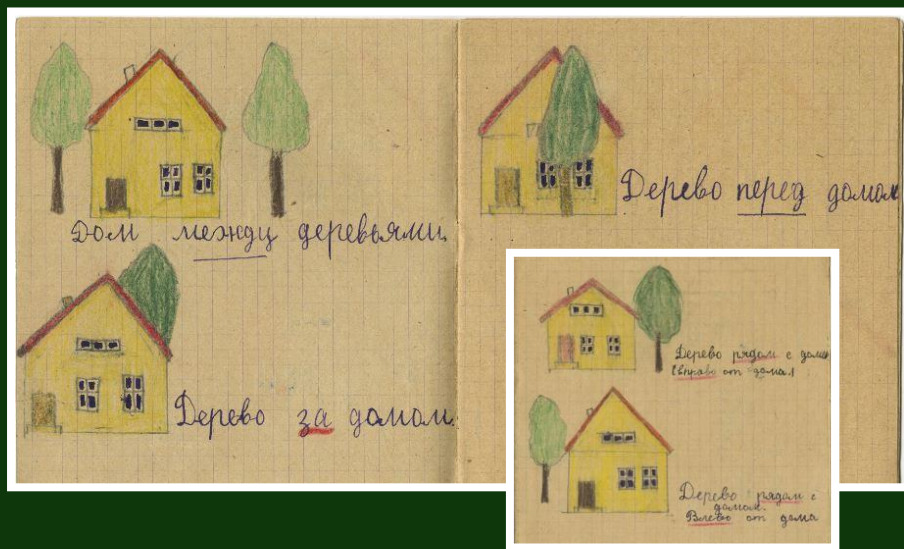 Дом между деревьями.
Дерево за домом.
Дерево перед домом
Дерево рядом с домом
(вправо от дома.)
Дерево рядом с
домом.
Влево от дома